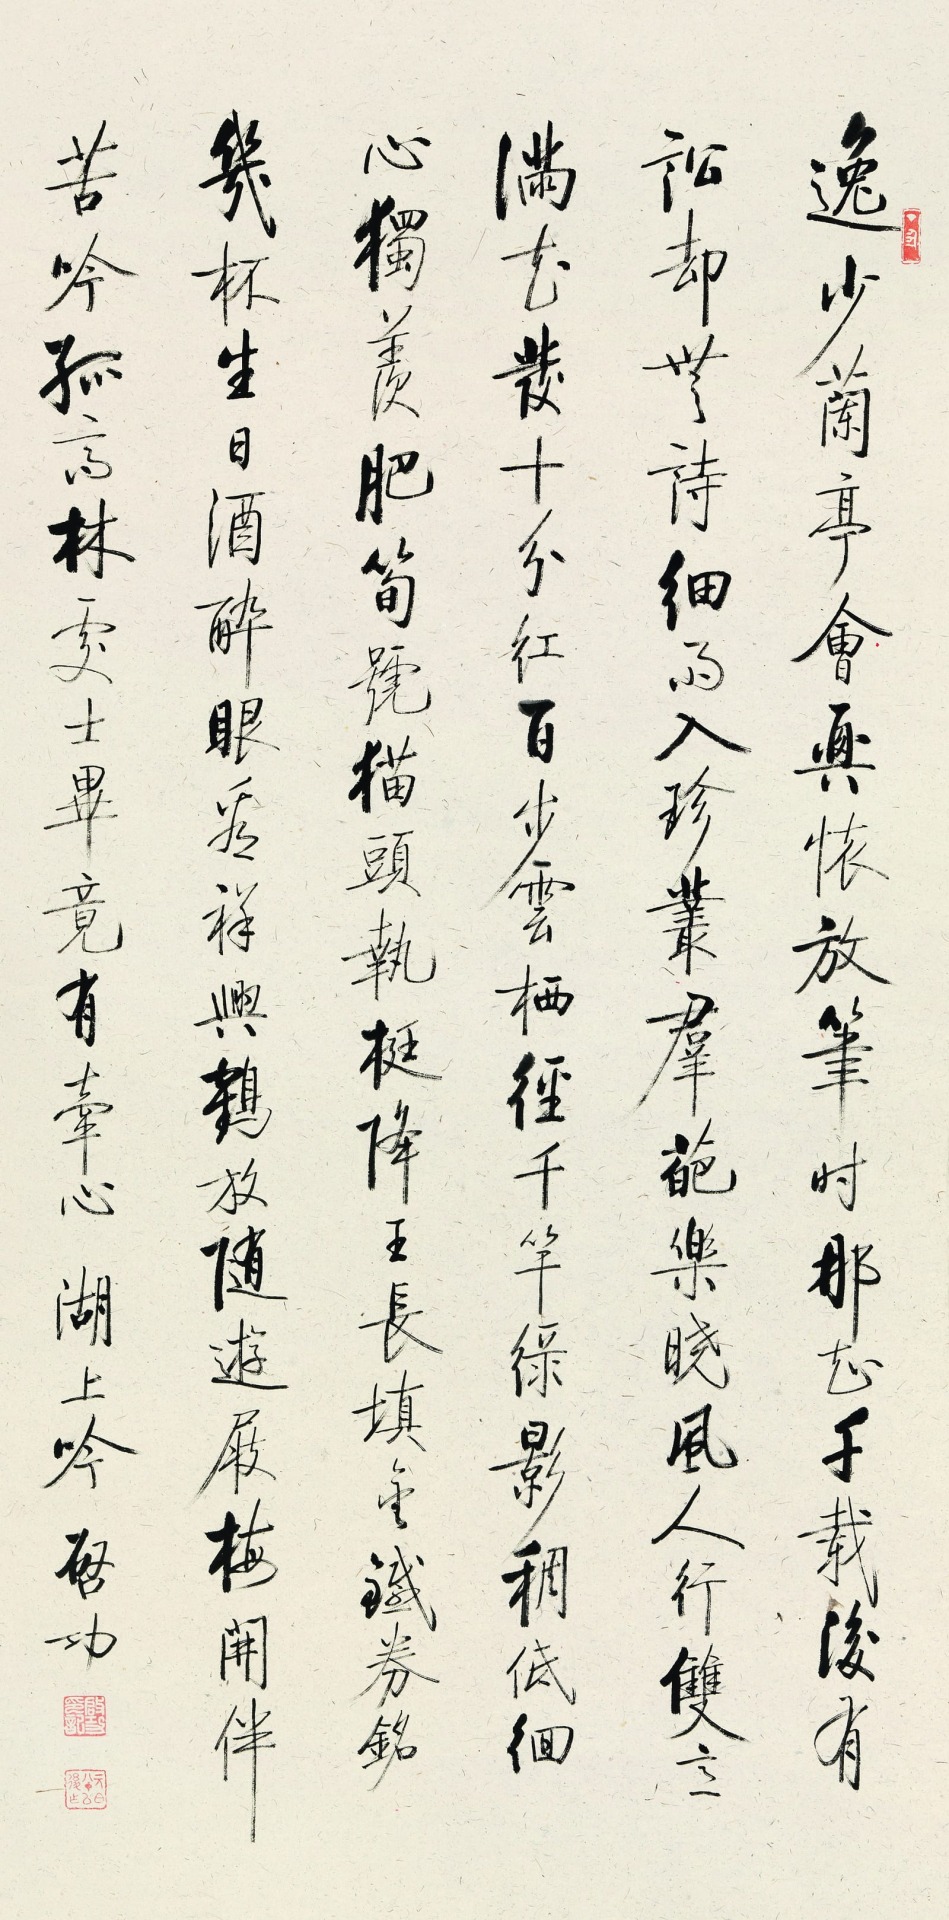 逸少蘭亭會興懷放筆時那知千載後有
訟却無詩細雨入珍叢羣葩樂曉風人行雙立
滿花發十分紅百步雲栖徑千竿綠影稠低徊
心獨羨肥筍號猫頭執梃降王長填金鐵券銘
幾杯生日酒醉眼看祥興鶴放隨遊屐梅開伴
苦吟孤高林處士畢竟有牽心 湖上吟 啓功